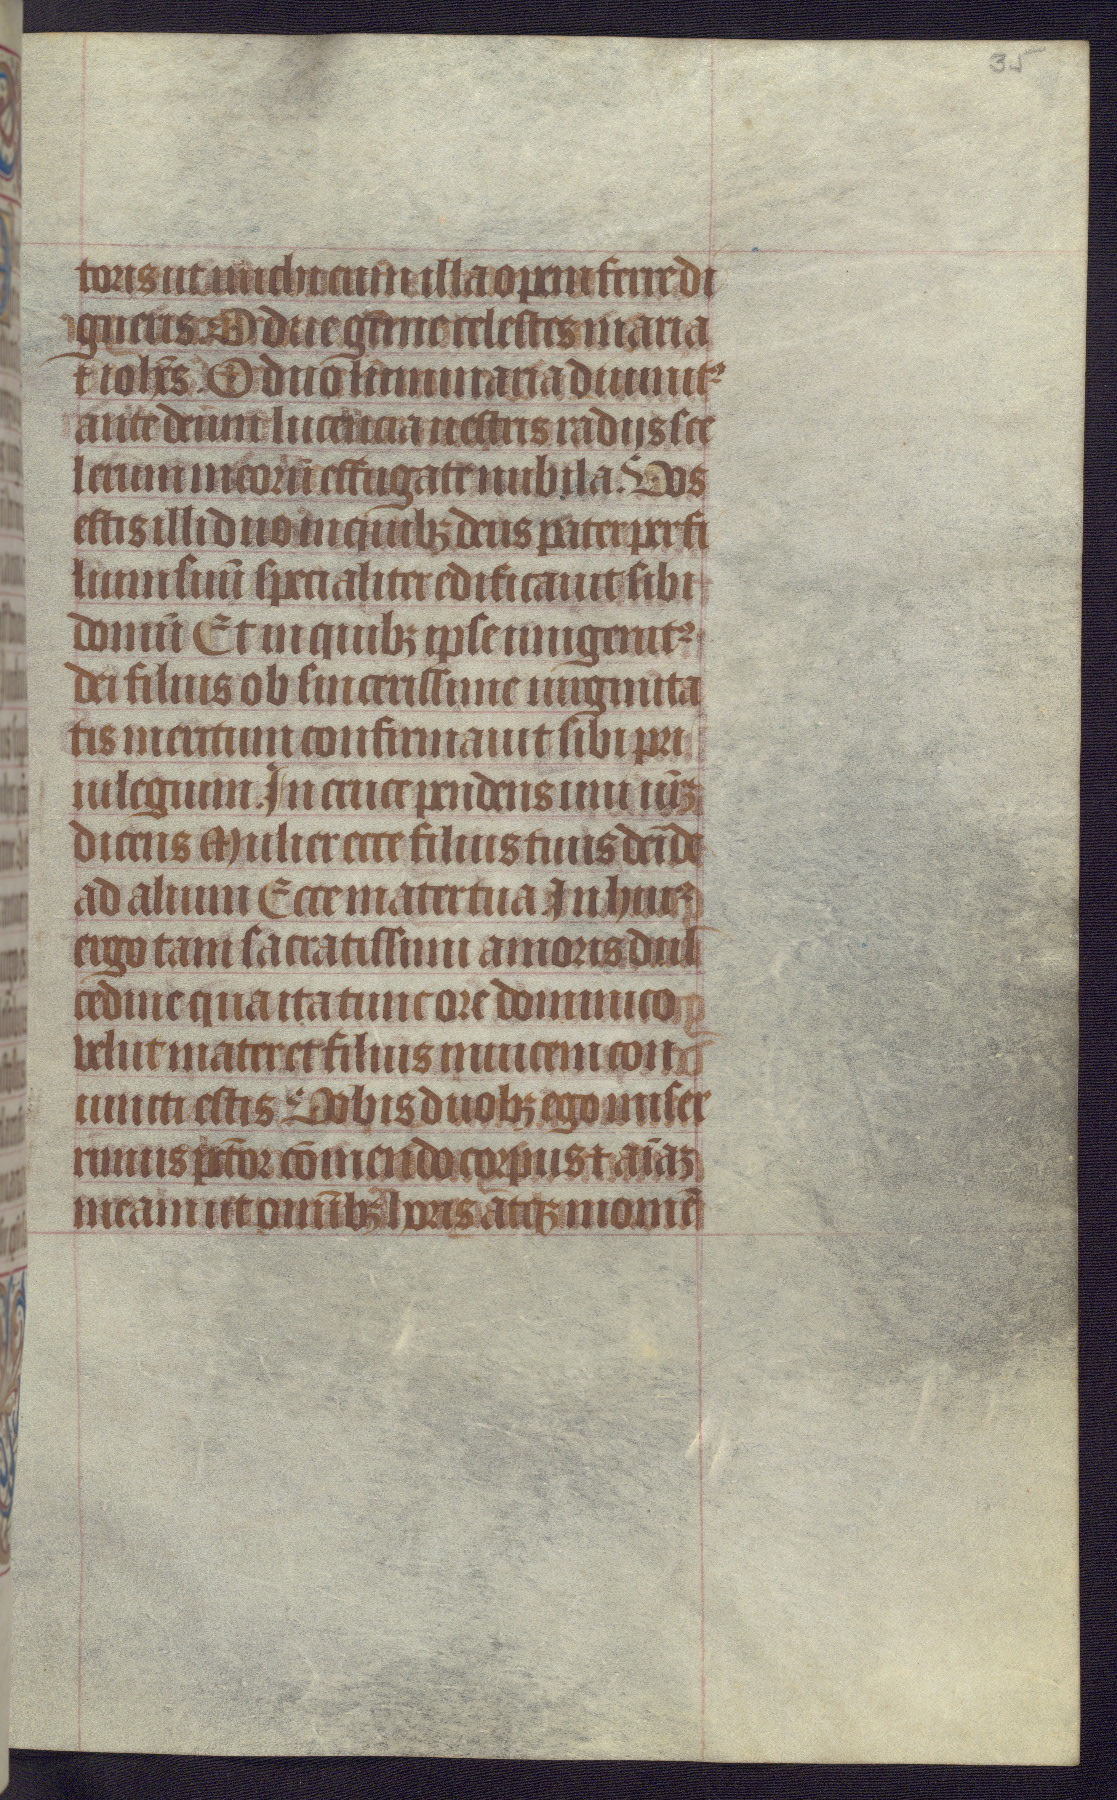 35
toris ut michi cum illa opem ferre di
gneris. O due gēme celestes maria
⁊ ioh̄es. O duo luminaria diuinit᷒
ante deum lucencia uestris radijs sce
lerum meorū effugate nubila. Vos
estis illi duo in quibꝫ deus pater per fi
lium suū specialiter edificauit sibi
domū Et in quibꝫ ipse unigenit᷒
dei filius ob sincerissime uirginita
tis meritum confirmauit sibi pri
uilegium. In cruce pendens uni ur̄ꝫ
dicens Mulier ecce filius tuus deīde
ad alium Ecce mater tua In hui᷒
ergo tam sacratissimi amoris dul
cedine qua ita tunc ore dominico
velut mater et filius inuicem con
iuncti estis Vobis duobꝫ ego miser
rimus pc̄tor cōmendo corpus ⁊ aīaꝫ
meam ut omībꝫ horis atqꝫ momē